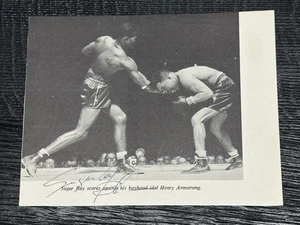 Sugar Ray scores against his boyhood idol Henry Armstrong.